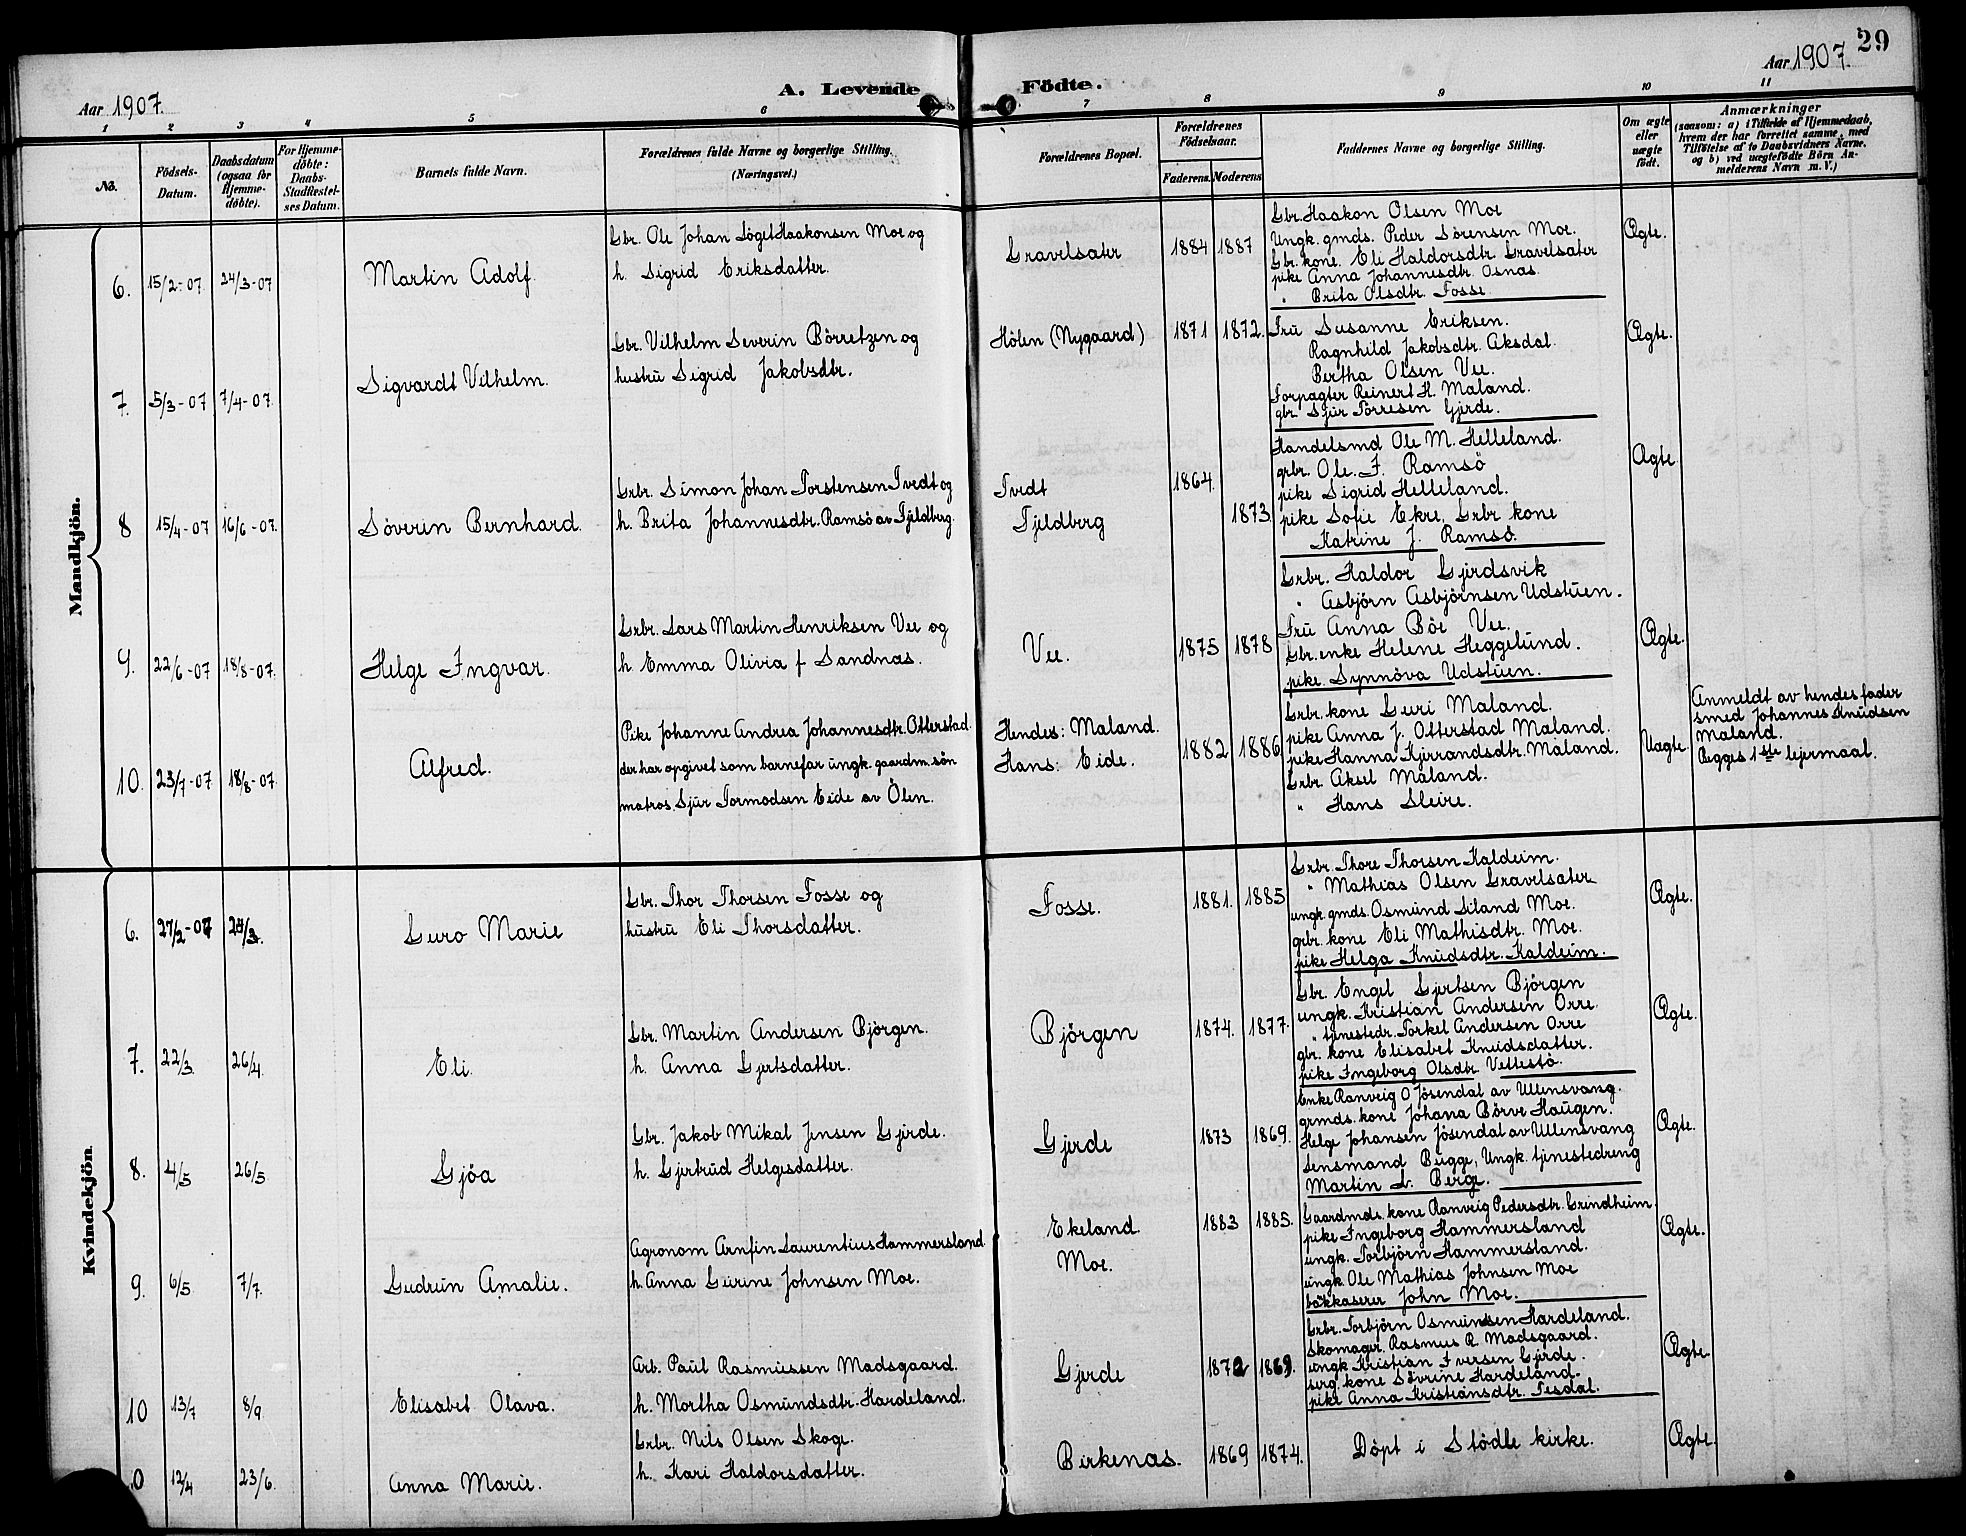 Aar 1907.
A. Levende Födte.
Aar 1907.
29
1 2 3 4 5 6 7 8 9 10 11
No.
Födsels-Datum.
Daabsdatum (ogsaa for Hjemme-døbte).
For Hjemme-døbte: Daabs-Stadfæstel-ses Datum.
Barnets fulde Navn.
Forældrenes fulde Navne og borgerlige Stilling. (Næringsvei.)
Forældrenes Bopæl.
Forældrenes Födselsaar.
Faderens. Moderens
Faddernes Navne og borgerlige Stilling.
Om ægte eller uægte födt.
Anmærkninger
(saasom: a) i Tilfælde af Hjemmedaab, hvem der har forrettet samme, med Tilföielse af to Daabsvidners Navne, og b) ved uægtefödte Börn An-melderens Navn m. V.)
Mandkjön.
6. 15/2-07 24/3-07 Martin Adolf.
Gbr. Ole Johan Töget Haakonsen Moe og
h. Sigrid Eriksdatter.
Gravelsæter 1884 1887
Gbr. Haakon Olsen Moe
Ungk. gmds. Peder Sörensen Moe.
Gbr. kone Eli Haldorsdtr Gravelsæter
pike Anna Johannesdtr. Osnæs.
" Brita Olsdtr. Fosse
Ægte.
7. 5/3-07 7/4-07. Sigvardt Vilhelm.
Gbr. Vilhelm Severin Börretzen og
hustru Sigrid Jakobsdtr.
Hölen (Nygaard) 1871 1872.
Fru Susanne Eriksen.
Ragnhild Jakobsdtr. Aksdal.
Bertha Olsen Vee.
Forpagter Reinert H. Mæland.
gbr. Sjur Torresen Gjerde.
Ægte.
8 15/4-07 16/6-07. Söverin Bernhard.
Grbr. Simon Johan Torstensen Tvedt og
h. Brita Johannesdtr. Ramsö av Fjeldberg.
Tvedt
Fjeldberg
1864. 1873
Handelsmd Ole M. Helleland.
grbr. Ole. J. Ramsö
pike Sigrid Helleland.
pike Sofie Ekre, Grbr kone
Katrine J. Ramsö.
Ægte.
9. 22/6-07 18/8-07. Helge Ingvar.
Grbr. Lars Martin Henriksen Vee og
h Emma Olivia f Sandnæs.
Vee. 1875 1878
Grbr. Haldor Gjerdsvik
" Asbjörn Asbjörnsen Udstuen.
Fru Anna Böe Vee.
Gbr. enke Helene Heggelund.
pike. Synnöva Udstuen.
Ægte.
10. 23/7-07 18/8-07. Alfred.
Pike Johanne Andrea Johannesdtr. Otterstad.
der har opgivet som barnefar ungk. gaardm. sön
matros Sjur Tormodsen Eide av Ölen.
Hendes: Mæland.
Hans: Eide.
1882 1886
Grbr. kone Guri Mæland.
pike Anna J. Otterstad Mæland.
pike Hanna Kjerrandsdtr. Mæland.
Grbr. Aksel Mæland.
" Hans Sleire.
Uægte
Anmeldt av hendes fader
smed Johannes Knudsen
Mæland.
Begges 1ste lejermaal.
Kvindekjön.
6. 27/2-07 29/3. Guro Marie
Gbr. Thor Thorsen Fosse og
hustru Eli Thorsdatter.
Fosse. 1881. 1885
Grbr. Thore Thorsen Kaldeim.
" Mathias Olsen Gravelsæter
ungk. gmds. Osmund Siland Moe.
grbr. kone Eli Mathisdtr. Moe.
pike Helga Knudsdtr. Kaldeim.
Ægte.
7. 22/3. 26/4. Eli.
Gbr. Martin Andersen Björgen.
h. Anna Gjertsdatter.
Björgen 1874. 1877.
Gbr. Engel Gjertsen Björgen
ungk. Kristian Andersen Orre.
" tjenestedr. Torkel Andersen Orre
gbr. kone Elisabet Knudsdatter.
pike Ingeborg Olsdtr Vellestö.
Ægte.
8. 4/5 26/5 Gjöa
Gbr. Jakob Mikal Jensen Gjerde.
h. Gjertrud Helgesdatter.
Gjerde 1873 1869.
Enke Ranveig O Jösendal av Ullensvang.
grmds. kone Johana Börve Haugen.
Helge Johansen Jösendal av Ullensvang
Lensmand Bugge, Ungk. tjenestedreng
Martin L. Berge.
Ægte.
9. 6/5 7/7. Gudrun Amalie.
Agronom Arnfin Laurentius Hammersland
h. Anna Gurine Johnsen Moe.
Ekeland
Moe.
1883 1885.
Gaardmds. kone Ranveig Pedersdtr. Grindheim.
pike Ingeborg Hammersland
ungk. Torbjörn Hammersland.
ungk. Ole Mathias Johnsen Moe
bakkaserer John Moe.
Ægte.
10 13/7 8/9. Elisabet Olava.
Arb. Paul Rasmussen Madsgaard.
h. Mortha Osmundsdtr. Hardeland.
Gjerde 1872 1869.
Grbr. Torbjörn Osmundsen Hardeland.
Skomager. Rasmus R. Madsgaard.
ungk Kristian Iversen Gjerde.
kone Sövrine Hardeland.
pike Anna Kristiansdtr. Tesdal.
Ægte.
0 12/4 23/6. Anna Marie.
Grbr. Nils Olsen Skoge.
h. Kari Haldorsdatter.
Birkenæs. 1869 1874.
Döpt i Stödle kirke.
Ægte.